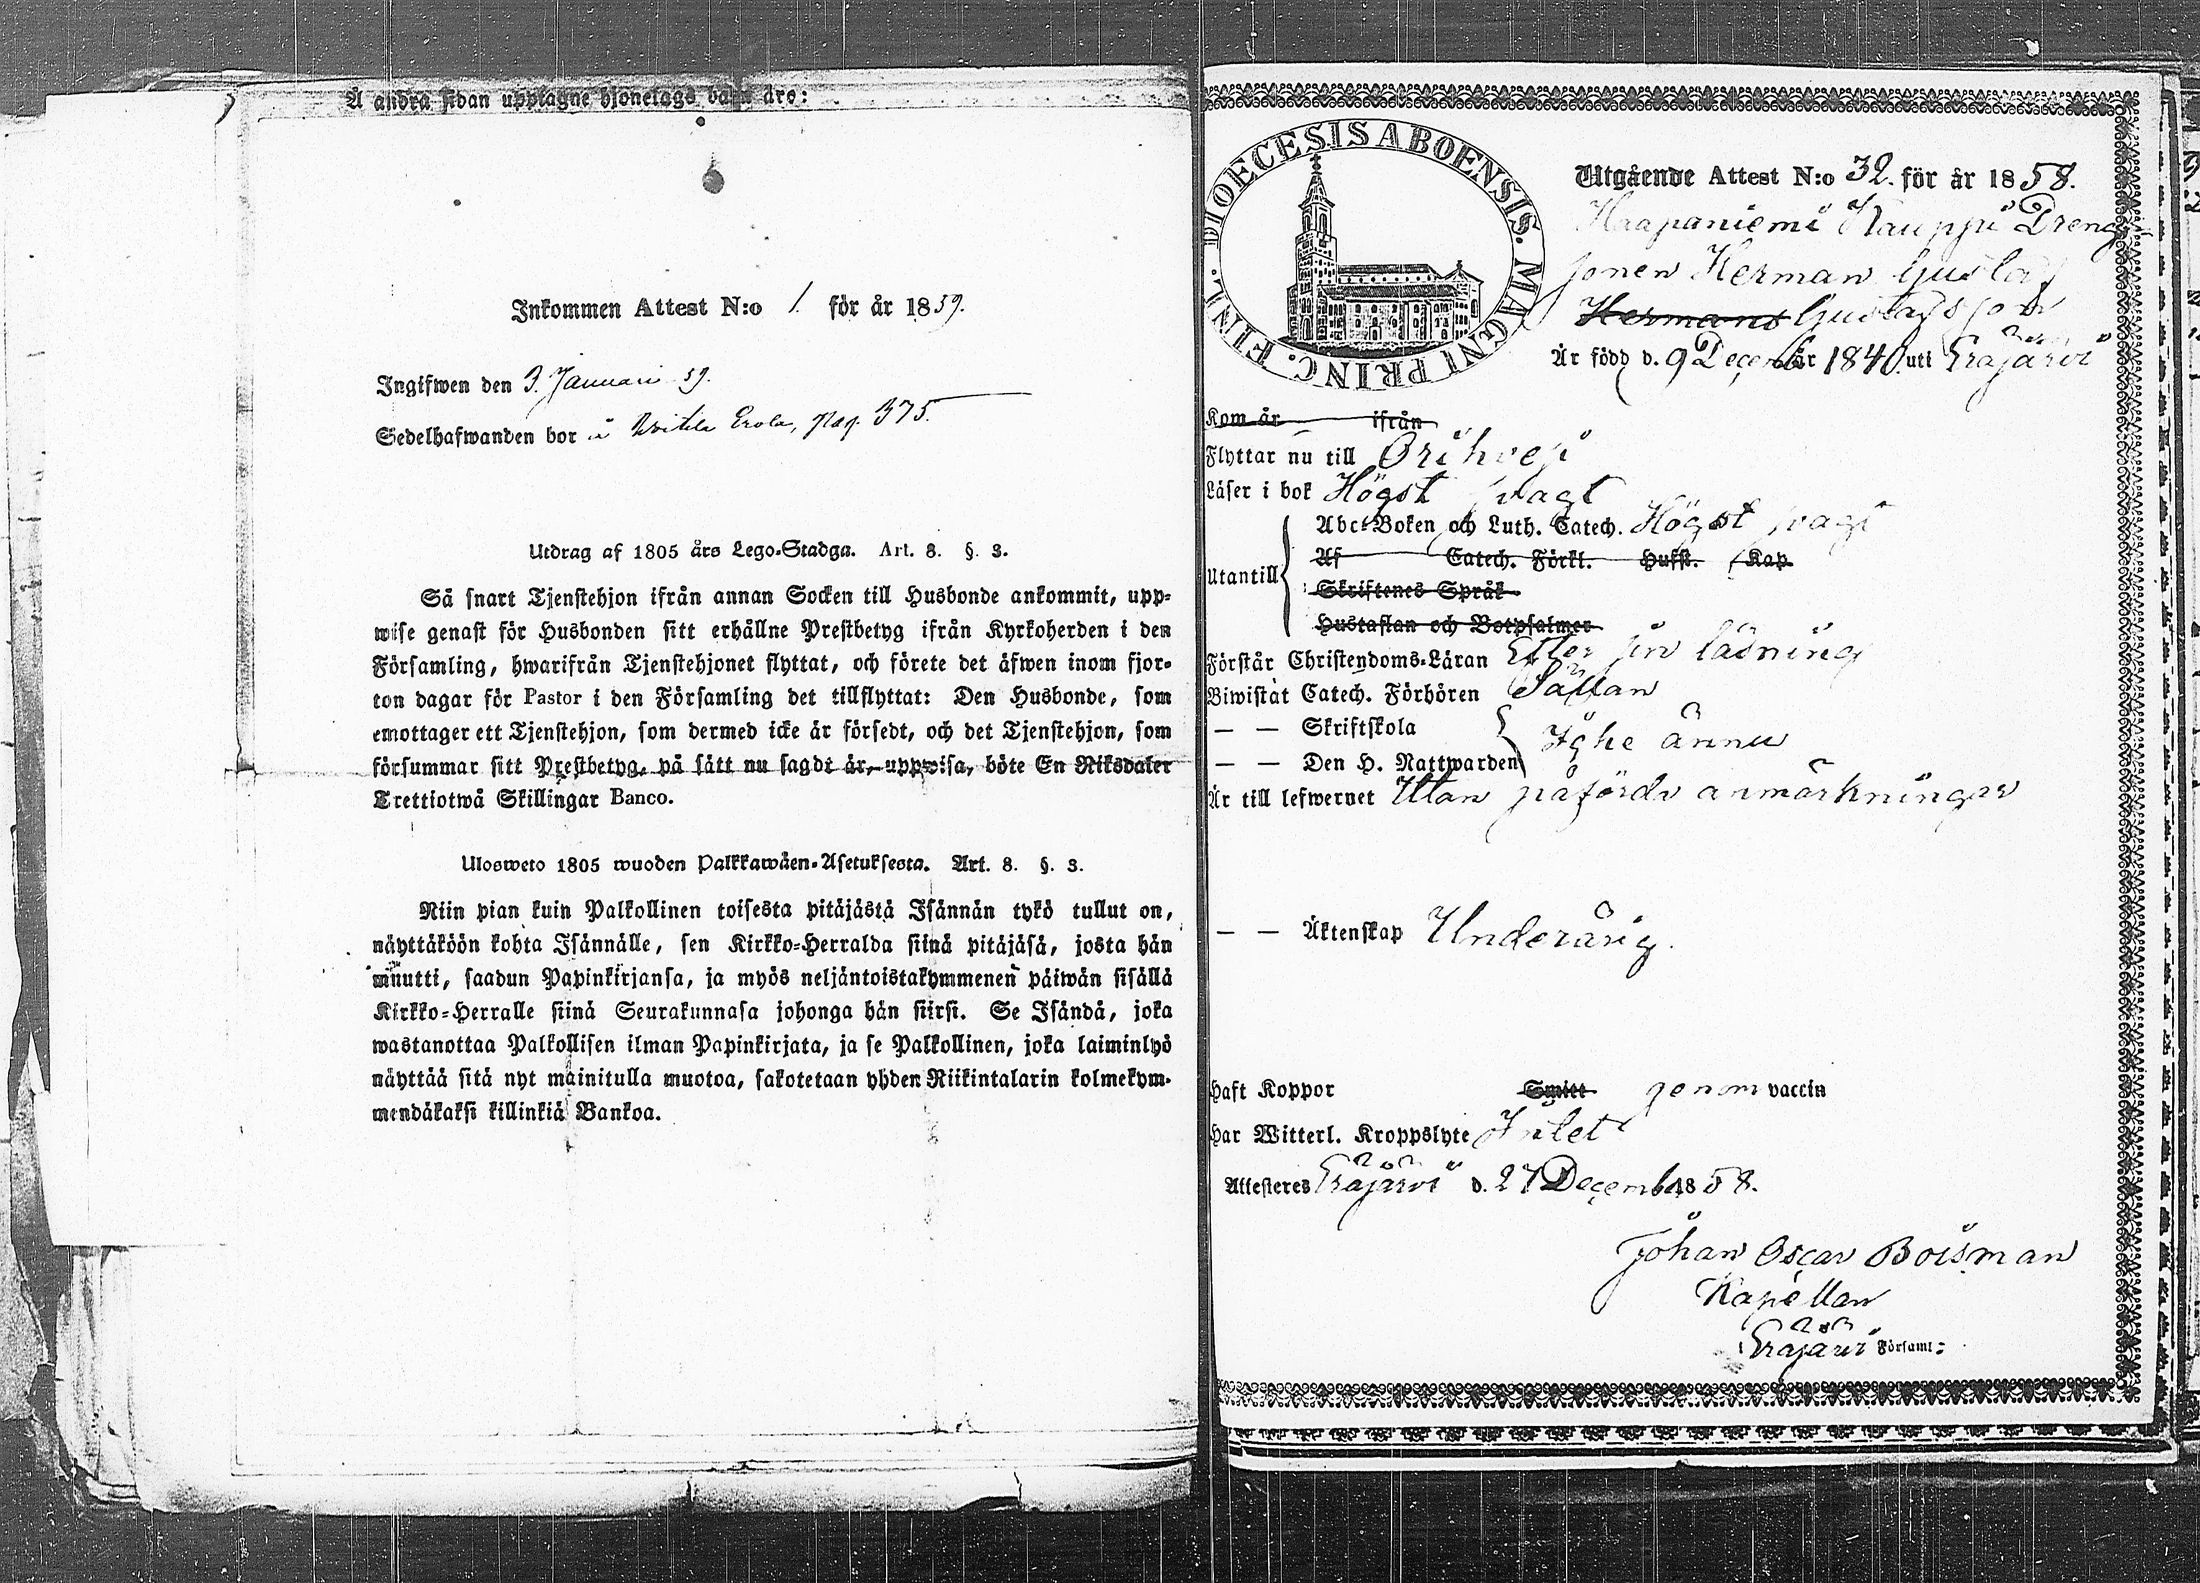 Å andra sidan upptagne hjonelags barn äro:
Inkommen Attest N:o 1. för år 1859.
Ingifwen den 3. Januari 59.
Sedelhafwanden bor i Uvitila Erola, pag. 375.
Utdrag af 1805 års Lego-Stadga. Art. 8. §. 3.
Så snart Tjenstehjon ifrån annan Socken till Husbonde ankommit, upp-
wise genast för Husbonden sitt erhållne Prestbetyg ifrån Kyrkoherden i den
Församling, hwarifrån Tjenstehjonet flyttat, och förete det äfwen inom fjor-
ton dagar för Pastor i den Församling det tillflyttat: Den Husbonde, som
emottager ett Tjenstehjon, som dermed icke är försedt, och det Tjenstehjon, som
försummar sitt Prestbetyg, på sätt nu sagdt är, uppwisa, böte En Riksdaler
Trettiotwå Skillingar Banco.
Ulosweto 1805 wuoden Palkkawäen-Asetuksesta. Art. 8. §. 3.
Niin pian kuin Palkollinen toisesta pitäjästä Isännän tykö tullut on,
näyttäköön kohta Isännälle, sen Kirkko-Herralda siinä pitäjäsä, josta hän
muutti, saadun Papinkirjansa, ja myös neljäntoistakymmenen päiwän sisällä
Kirkko-Herralle siinä Seurakunnasa johonga hän siirsi. Se Isändä, joka
wastanottaa Palkollisen ilman Papinkirjata, ja se Palkollinen, joka laiminlyö
näyttää sitä nyt mainitulla muotoa, sakotetaan yhden Riikintalarin kolmekym-
mendäkaksi killinkiä Bankoa.
DIOECESIS ABOENSIS. MAGNI PRINC. FINL.
Utgående Attest N:o 32. för år 1858.
Haapaniemi Kauppi Dreng-
sonen Herman Gustaf
Hermans Gustafsson
Är född d. 9 Decemb år 1840 uti Eräjärvi
Kom år ifrån
Flyttar nu till Orihvesi
Läser i bok Högst svagt
Utantill
Abc-Boken och Luth. Catech. Högst svagt
Af Catech. Förkl. Hufst. Kap
Skriftenes Språk
Hustaflan och Botpsalmer
Förstår Christendoms-Läran Efter sin läsning
Biwistat Catech. Förhören Sällan
— — Skriftskola
Icke ännu
— — Den H. Nattwarden
Är till lefwernet Utan påförda anmärkningar
— — Äktenskap Underårig.
Haft Koppor Smitt genom vaccin
Har Witterl. Kroppslyte Intet
Attesteres Eräjärvi d. 27 Decemb 1858.
Johan Oscar Boisman
Kapellan
Eräjärvi Församl: